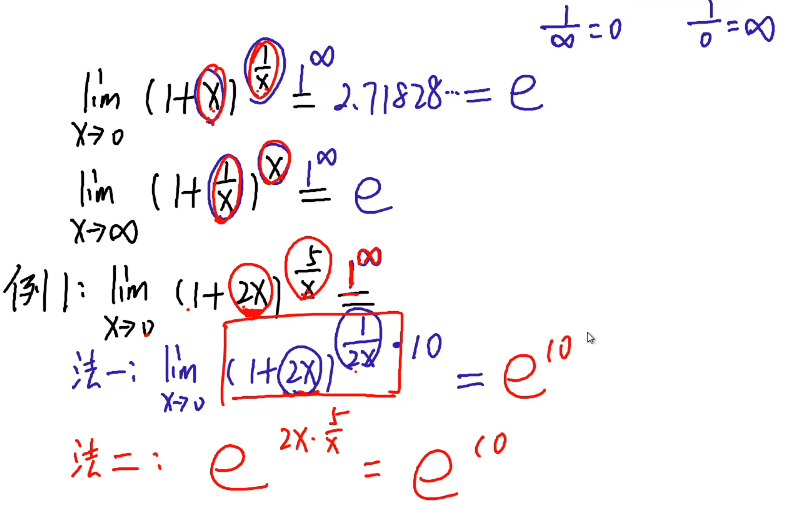 1/∞ = 0   1/0 = ∞
lim x→0 (1+x)^(1/x) 1^∞ = 2.71828… = e
lim x→∞ (1+1/x)^x 1^∞ = e
例1: lim x→0 (1+2x)^(5/x) 1^∞ =
法一: lim x→0 (1+2x)^(1/2x · 10) = e^10
法二: e^(2x·5/x) = e^10